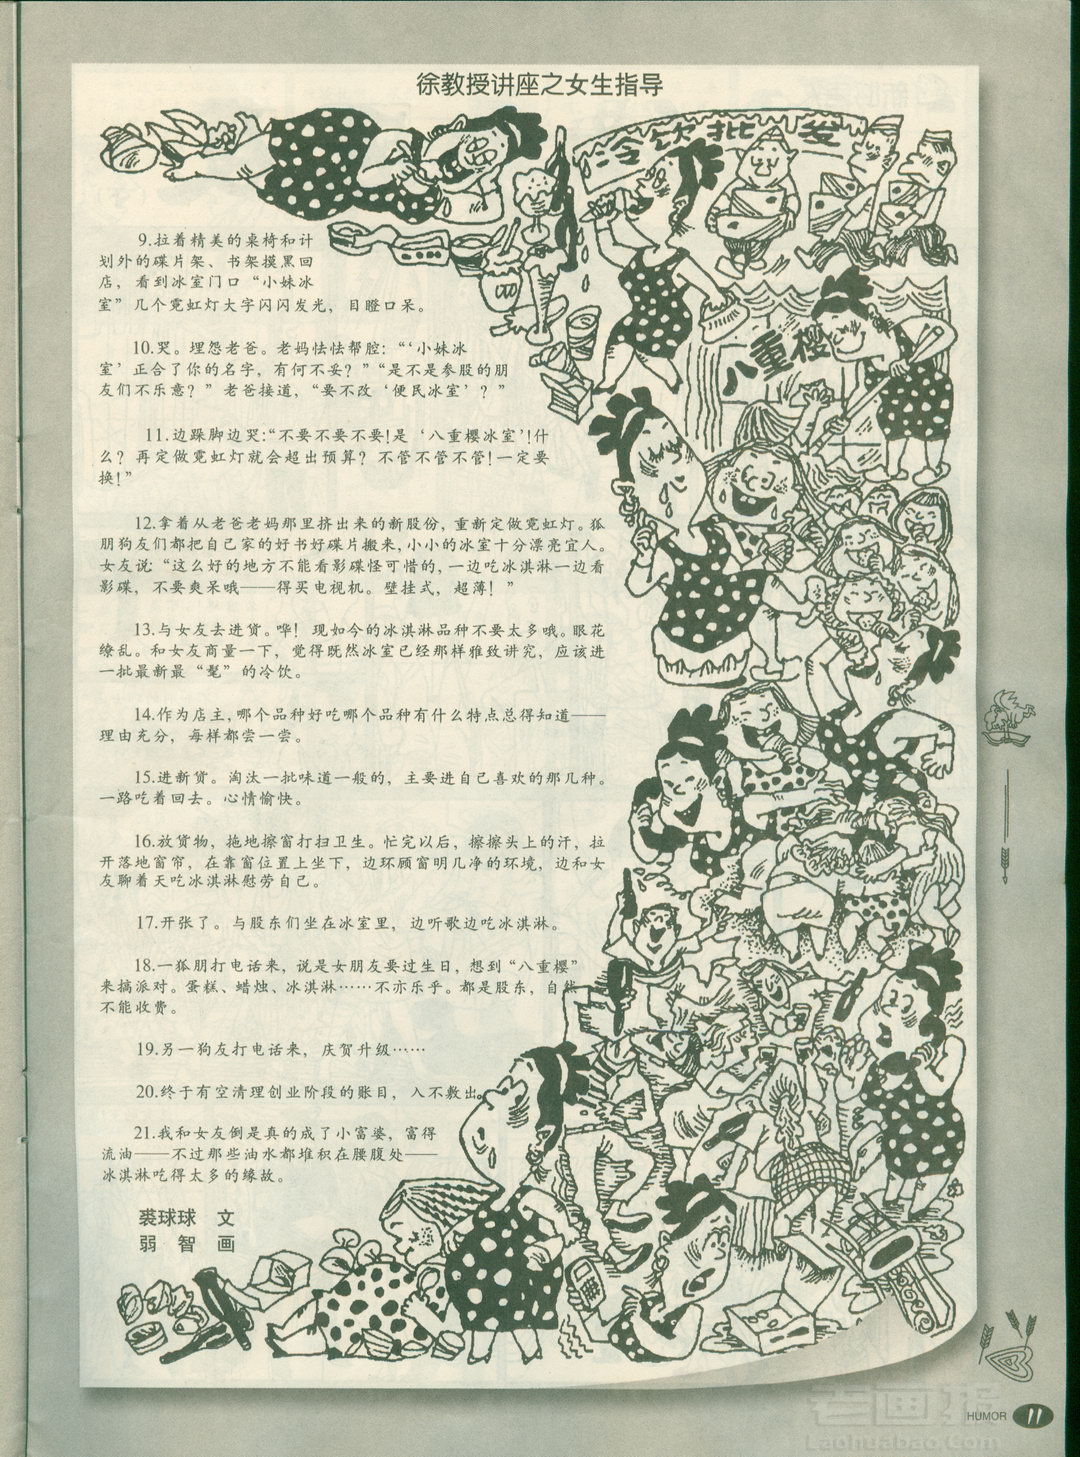 徐教授讲座之女生指导
冷饮批发
9.拉着精美的桌椅和计
划外的碟片架、书架摸黑回
店，看到冰室门口“小妹冰
室”几个霓虹灯大字闪闪发光，目瞪口呆。
八重樱
10.哭。埋怨老爸。老妈怯怯帮腔：“‘小妹冰
室’正合了你的名字，有何不妥？”“是不是参股的朋
友们不乐意？”老爸接道，“要不改‘便民冰室’？”
11.边跺脚边哭：“不要不要不要！是‘八重樱冰室’！什
么？再定做霓虹灯就会超出预算？不管不管不管！一定要
换！”
12.拿着从老爸老妈那里挤出来的新股份，重新定做霓虹灯。狐
朋狗友们都把自己家的好书好碟片搬来，小小的冰室十分漂亮宜人。
女友说：“这么好的地方不能看影碟怪可惜的，一边吃冰淇淋一边看
影碟，不要爽呆哦——得买电视机。壁挂式，超薄！”
13.与女友去进货。哗！现如今的冰淇淋品种不要太多哦。眼花
缭乱。和女友商量一下，觉得既然冰室已经那样雅致讲究，应该进
一批最新最“髦”的冷饮。
14.作为店主，哪个品种好吃哪个品种有什么特点总得知道——
理由充分，每样都尝一尝。
15.进新货。淘汰一批味道一般的，主要进自己喜欢的那几种。
一路吃着回去。心情愉快。
16.放货物，拖地擦窗打扫卫生。忙完以后，擦擦头上的汗，拉
开落地窗帘，在靠窗位置上坐下，边环顾窗明几净的环境，边和女
友聊着天吃冰淇淋慰劳自己。
17.开张了。与股东们坐在冰室里，边听歌边吃冰淇淋。
18.一狐朋打电话来，说是女朋友要过生日，想到“八重樱”
来搞派对。蛋糕、蜡烛、冰淇淋……不亦乐乎。都是股东，自然
不能收费。
19.另一狗友打电话来，庆贺升级……
20.终于有空清理创业阶段的账目，入不敷出。
21.我和女友倒是真的成了小富婆，富得
流油——不过那些油水都堆积在腰腹处——
冰淇淋吃得太多的缘故。
裘球球 文
弱智 画
HUMOR 11
老画报
Laohuabao.Com